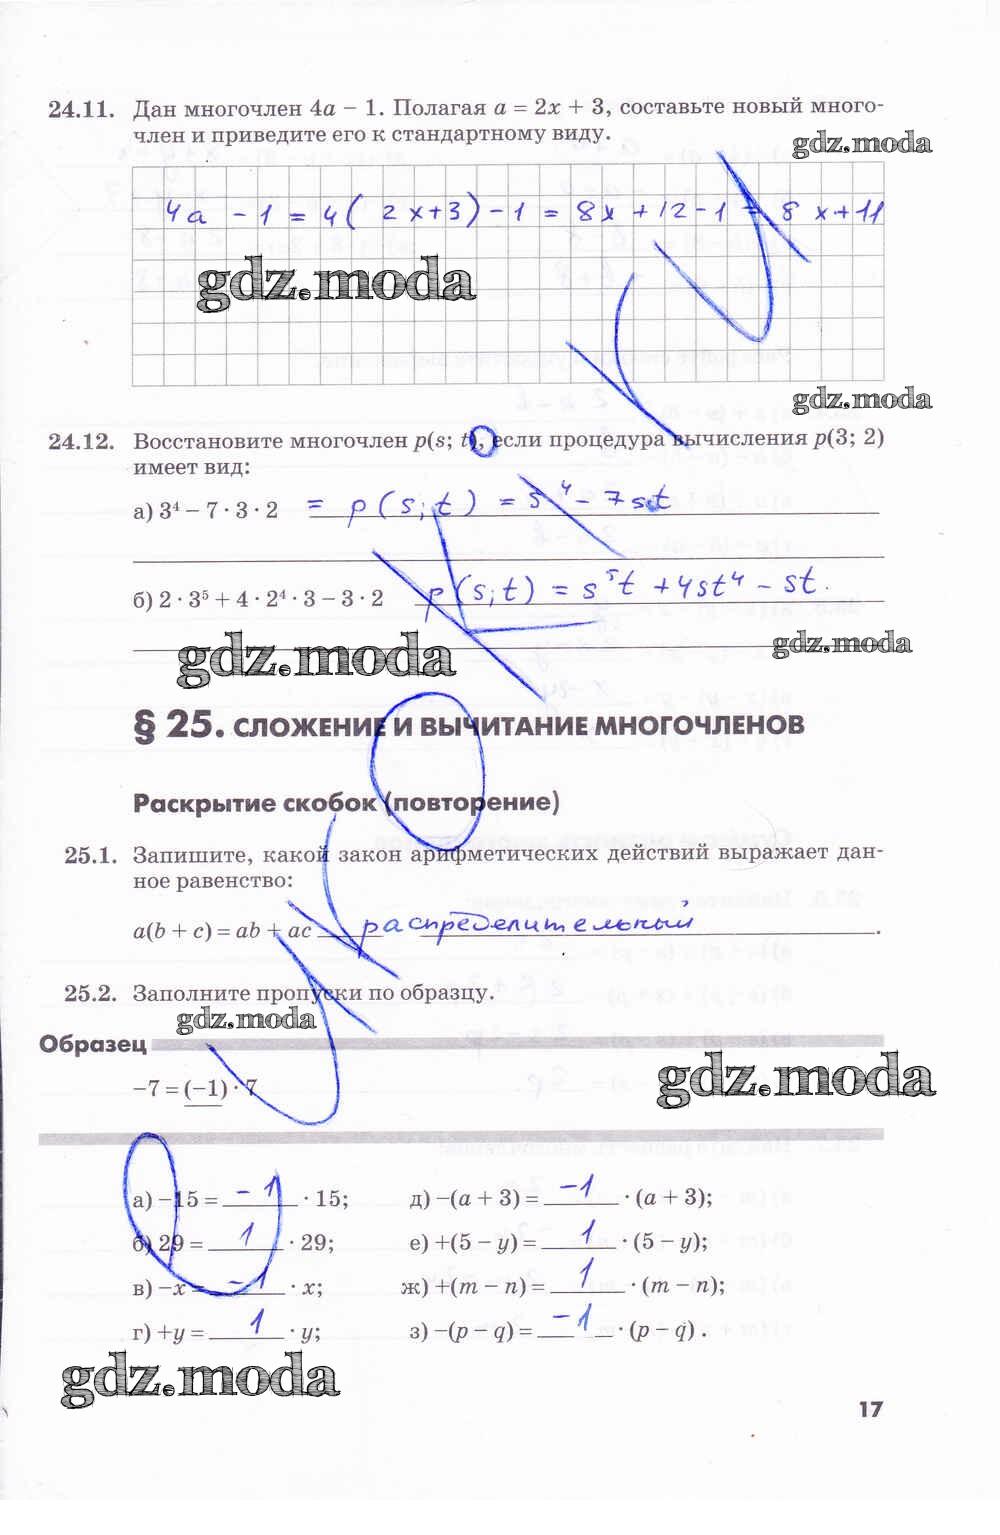 24.11. Дан многочлен 4a − 1. Полагая a = 2x + 3, составьте новый много-
член и приведите его к стандартному виду.
gdz.moda
4a − 1 = 4( 2x+3) − 1 = 8x + 12 − 1 = 8x+11
gdz.moda
gdz.moda
24.12. Восстановите многочлен p(s; t), если процедура вычисления p(3; 2)
имеет вид:
а) 3⁴ − 7 · 3 · 2 = p(s;t) = s⁴ − 7st
б) 2 · 3⁵ + 4 · 2⁴ · 3 − 3 · 2 p(s;t) = s⁵t + 4st⁴ − st.
gdz.moda
gdz.moda
§ 25. СЛОЖЕНИЕ И ВЫЧИТАНИЕ МНОГОЧЛЕНОВ
Раскрытие скобок (повторение)
25.1. Запишите, какой закон арифметических действий выражает дан-
ное равенство:
a(b + c) = ab + ac распределительный.
25.2. Заполните пропуски по образцу.
gdz.moda
Образец
−7 = (−1) · 7
gdz.moda
а) −15 = −1 · 15; д) −(a + 3) = −1 · (a + 3);
б) 29 = 1 · 29; е) +(5 − y) = 1 · (5 − y);
в) −x = −1 · x; ж) +(m − n) = 1 · (m − n);
г) +y = 1 · y; з) −(p − q) = −1 · (p − q).
gdz.moda
17